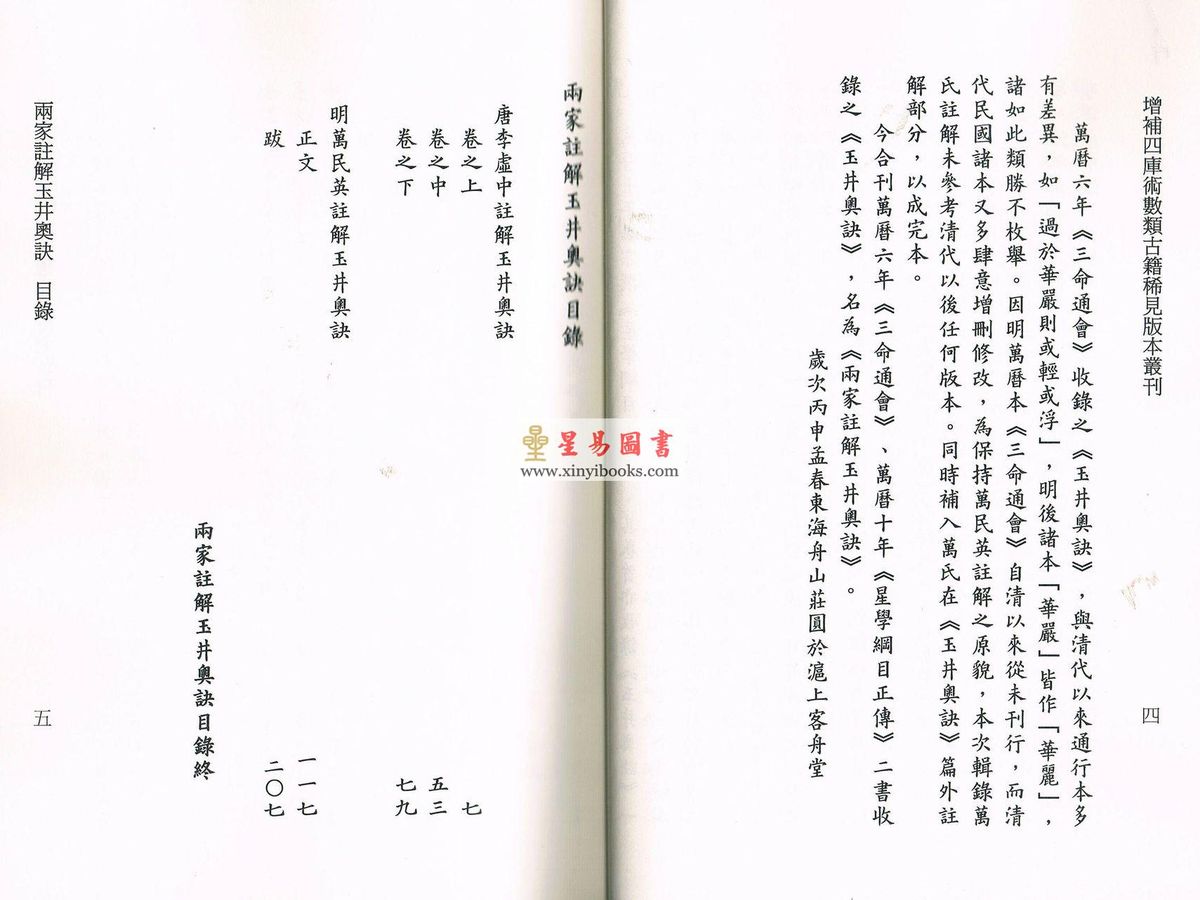 增補四庫術數類古籍稀見版本叢刊
四
萬曆六年《三命通會》收錄之《玉井奧訣》，與清代以來通行本多
有差異，如「過於華嚴則或輕或浮」，明後諸本「華嚴」皆作「華麗」，
諸如此類勝不枚舉。因明萬曆本《三命通會》自清以來從未刊行，而清
代民國諸本又多肆意增刪修改，為保持萬民英註解之原貌，本次輯錄萬
氏註解未參考清代以後任何版本。同時補入萬氏在《玉井奧訣》篇外註
解部分，以成完本。
今合刊萬曆六年《三命通會》、萬曆十年《星學綱目正傳》二書收
錄之《玉井奧訣》，名為《兩家註解玉井奧訣》。
歲次丙申孟春東海舟山莊圓於滬上客舟堂
兩家註解玉井奧訣目錄
唐李虛中註解玉井奧訣
卷之上 七
卷之中 五三
卷之下 七九
明萬民英註解玉井奧訣
正文 一一七
跋 二〇七
兩家註解玉井奧訣目錄終
兩家註解玉井奧訣 目錄
五
星易圖書
www.xinyibooks.com